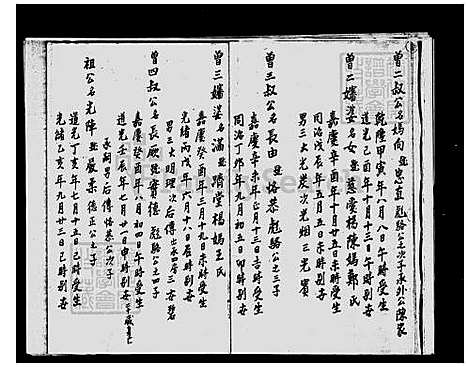 曾二叔公名媽向 諡忠直 彪胳公之次子承外公陳家
乾隆甲寅年八月八日午時受生
道光 年十月十三日午時別世
曾二嬸婆名女 諡慈愛楊陳媽鄭氏
嘉慶辛酉年十月十五日未時受生
同治戊辰年五月五日未時別世
男三大光裘次光 三光實
曾三叔公名長由 諡恪恭 彪胳公之三子
嘉慶辛未年正月十三日吉時受生
同治丁卯年九月初五日卯時別世
曾三嬸婆名滿 諡 堂楊媽王氏
嘉慶癸酉年三月十九日未時受生
光緒丙戌年六月十八日辰時別世
男三大明理次后傳出承四房三 碧
曾四叔公名長厩 諡實德 彪胳公之四子
嘉慶癸酉年八月初四日午時受生
道光壬辰年七月廿日申時別世
承嗣男后傳恪恭公次子
祖公名光陣 諡嚴柔 德正公之子
道光丁亥年七月十五日巳時受生
光緒乙亥年九月廿三日巳時別世